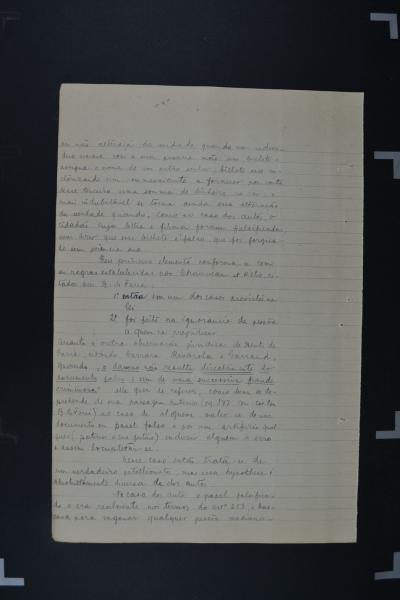 ou não alteração da verdade quando um indivi-
duo escreve com a sua propria mão um bilhete e
assigna o nome de um outro senhor, bilhete esse
um commerciante a fornecer por conta
desse terceiro uma somma de dinheiro
mais indubitavel se torna ainda essa alteração
da verdade quando, como no caso dos autos, o
cidadão cuja letra e firma foram falsificadas
vem dizer que esse bilhete é falso, que foi forja-
do sem sciencia sua
Esse primeiro elemento conforma-se com
as regras estabelecidas por Chauveau et Hélie ci-
tados em B. de Faria:
1º entra em um dos casos previstos na
lei
2º foi feito na ignorancia da pessôa
a quem ia prejudicar
Quanto á outra observação juridica de Bento de
Faria, citando Carrara Rivarola e Garraud,
quando "o damno não resulta directamente do
documento falso, e sim de uma successiva fraude
criminosa" elle quer se referir, como bem se de-
prehende de uma passagem anterior
B. de Faria) ao caso de alguem valer-se de um
documento ou papel falso e por um artificio qual-
quer, induzir alguem a erro
e assim locupletar-se.
Nesse caso então trata-se de
um verdadeiro estellionato, mas essa hypothese é
absolutamente diversa da dos autos
No caso dos autos o papel falsifica-
do o era realmente nos termos do artº 253, e bas-
tava para enganar qualquer pessôa mediana-